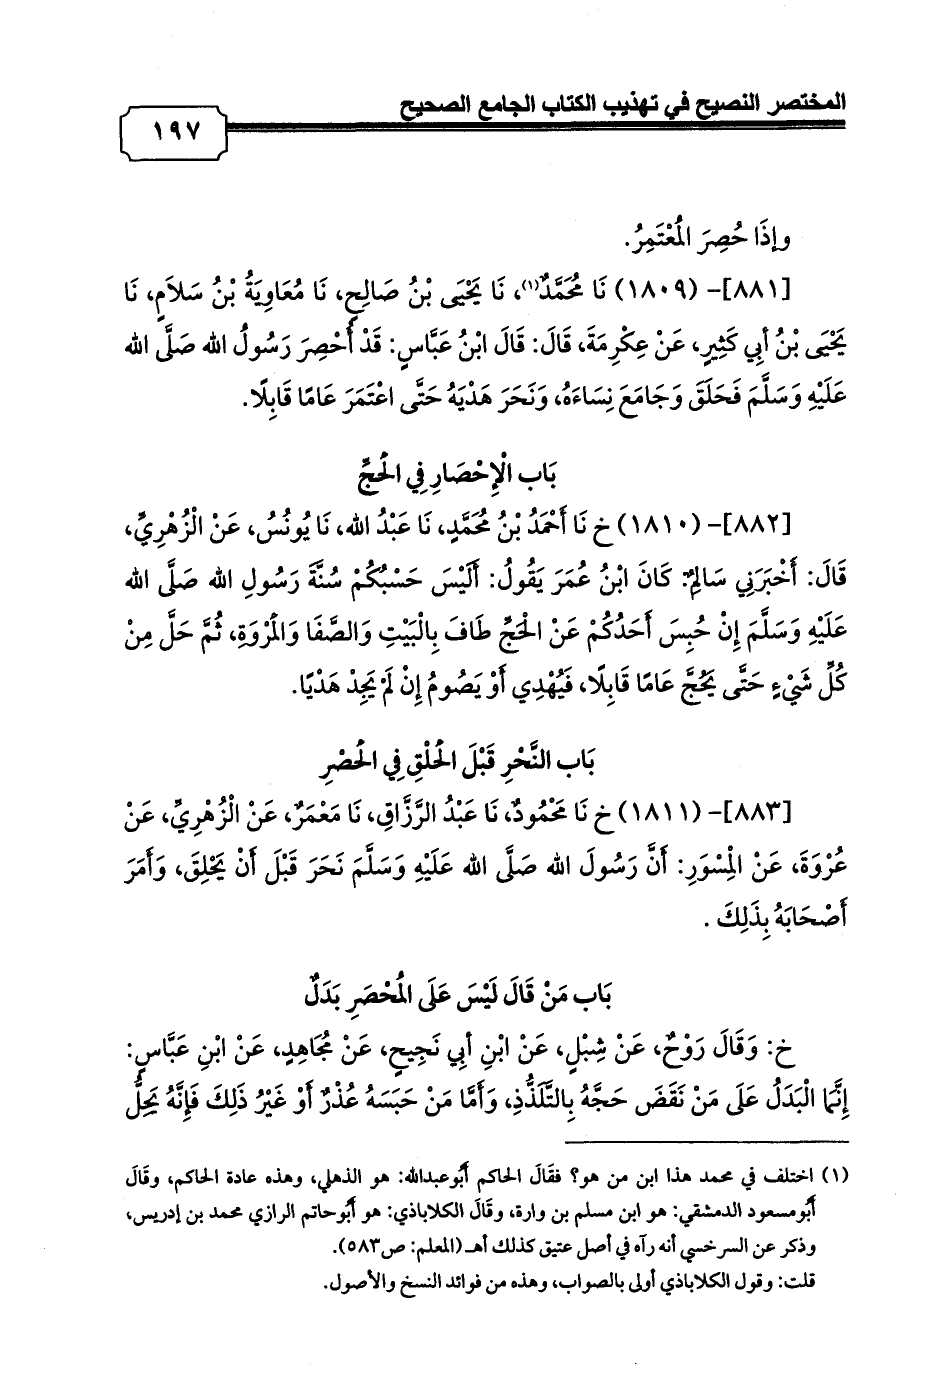 المختصر النصيح في تهذيب الكتاب الجامع الصحيح
١٩٧
وإذَا حُصِرَ المُعْتَمِرُ.
[٨٨١]- (١٨٠٩) نَا مُحَمَّدٌ(١)، نَا يَحْيَى بْنُ صَالِحٍ، نَا مُعَاوِيَةُ بْنُ سَلاَمٍ، نَا
يَحْيَى بْنُ أبِي كَثِيرٍ، عَنْ عِكْرِمَةَ، قَالَ: قَالَ ابْنُ عَبَّاسٍ: قَدْ أُحْصِرَ رَسُولُ الله صَلَّى الله
عَلَيْهِ وَسَلَّمَ فَحَلَقَ وَجَامَعَ نِسَاءَهُ، وَنَحَرَ هَدْيَهُ حَتَّى اعْتَمَرَ عَامًا قَابِلًا.
بَاب الْإِحْصَارِ فِي الْحَجِّ
[٨٨٢]- (١٨١٠) خ نَا أَحْمَدُ بْنُ مُحَمَّدٍ، نَا عَبْدُ الله، نَا يُونُسُ، عَنْ الْزُهْرِيِّ،
قَالَ: أَخْبَرَنِي سَالِمٌ: كَانَ ابْنُ عُمَرَ يَقُولُ: أَلَيْسَ حَسْبُكُمْ سُنَّةَ رَسُولِ الله صَلَّى الله
عَلَيْهِ وَسَلَّمَ إِنْ حُبِسَ أَحَدُكُمْ عَنْ الْحَجِّ طَافَ بِالْبَيْتِ وَالصَّفَا وَالمَرْوَةِ، ثُمَّ حَلَّ مِنْ
كُلِّ شَيْءٍ حَتَّى يَحُجَّ عَامًا قَابِلًا، فَيُهْدِي أَوْ يَصُومُ إِنْ لَمْ يَجِدْ هَدْيًا.
بَاب النَّحْرِ قَبْلَ الْحَلْقِ فِي الْحَصْرِ
[٨٨٣]- (١٨١١) خ نَا مَحْمُودٌ، نَا عَبْدُ الرَّزَّاقِ، نَا مَعْمَرٌ، عَنْ الْزُهْرِيِّ، عَنْ
عُرْوَةَ، عَنْ الْمِسْوَرِ: أَنَّ رَسُولَ الله صَلَّى الله عَلَيْهِ وَسَلَّمَ نَحَرَ قَبْلَ أَنْ يَحْلِقَ، وَأَمَرَ
أَصْحَابَهُ بِذَلِكَ .
بَاب مَنْ قَالَ لَيْسَ عَلَى الْمُحْصَرِ بَدَلٌ
خ: وَقَالَ رَوْحٌ، عَنْ شِبْلٍ، عَنْ ابْنِ أبِي نَجِيحٍ، عَنْ مُجَاهِدٍ، عَنْ ابْنِ عَبَّاسٍ:
إِنَّمَا الْبَدَلُ عَلَى مَنْ نَقَضَ حَجَّهُ بِالتَّلَذُّذِ، وَأَمَّا مَنْ حَبَسَهُ عُذْرٌ أَوْ غَيْرُ ذَلِكَ فَإِنَّهُ يَحِلُّ
(١) اختلف في محمد هذا ابن من هو؟ فقَالَ الحاكم أبُوعبدالله: هو الذهلي، وهذه عادة الحاكم، وقَالَ
أبُومسعود الدمشقي: هو ابن مسلم بن وارة، وقَالَ الكلاباذي: هو أبُوحاتم الرازي محمد بن إدريس،
وذكر عن السرخسي أنه رآه في أصل عتيق كذلك أهـ (المعلم: ص٥٨٣).
قلت: وقول الكلاباذي أولى بالصواب، وهذه من فوائد النسخ والأصول.